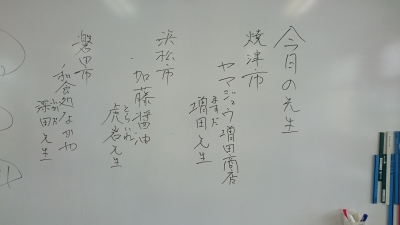 今日の先生
焼津市
ヤマジュウ増田商店
ますだ
増田先生
浜松市
・加藤醤油
とらいわ
虎岩先生
磐田市
和食処なかや
ふかだ
深田先生